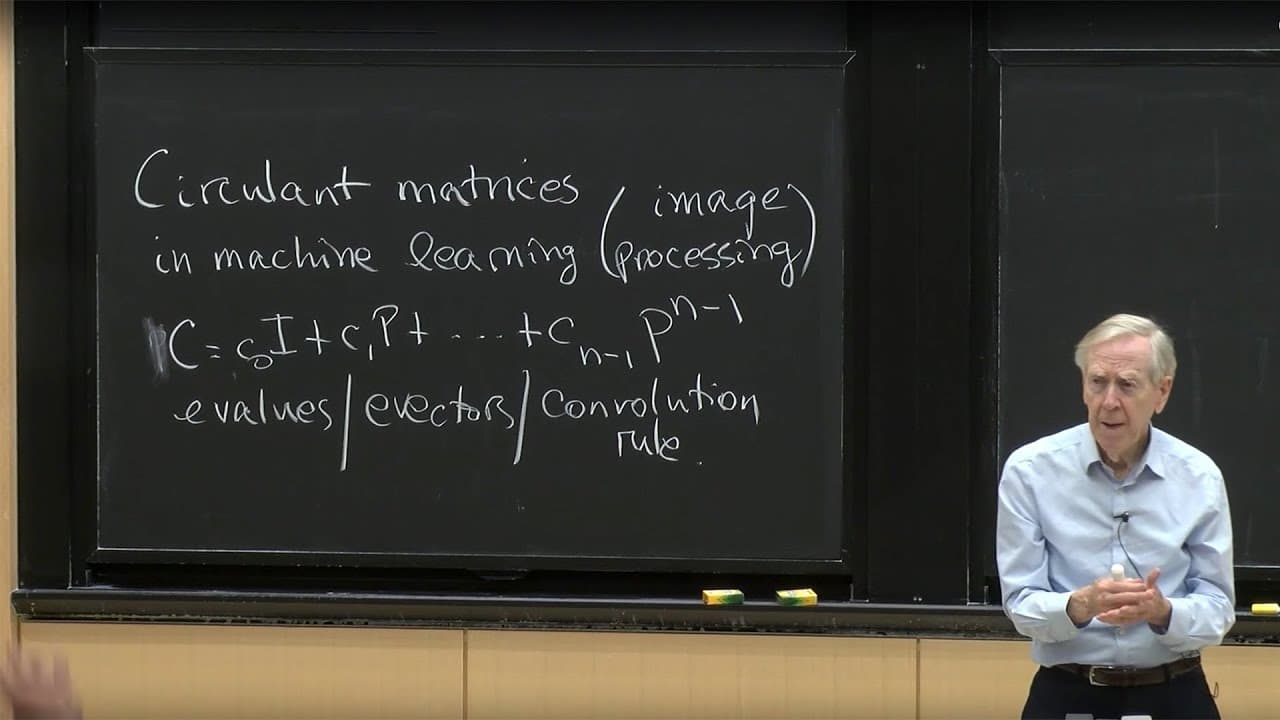 Circulant matrices
in machine learning (image processing)
C = c₀I + c₁P + ... + cₙ₋₁Pⁿ⁻¹
evalues / evectors / convolution
rule.